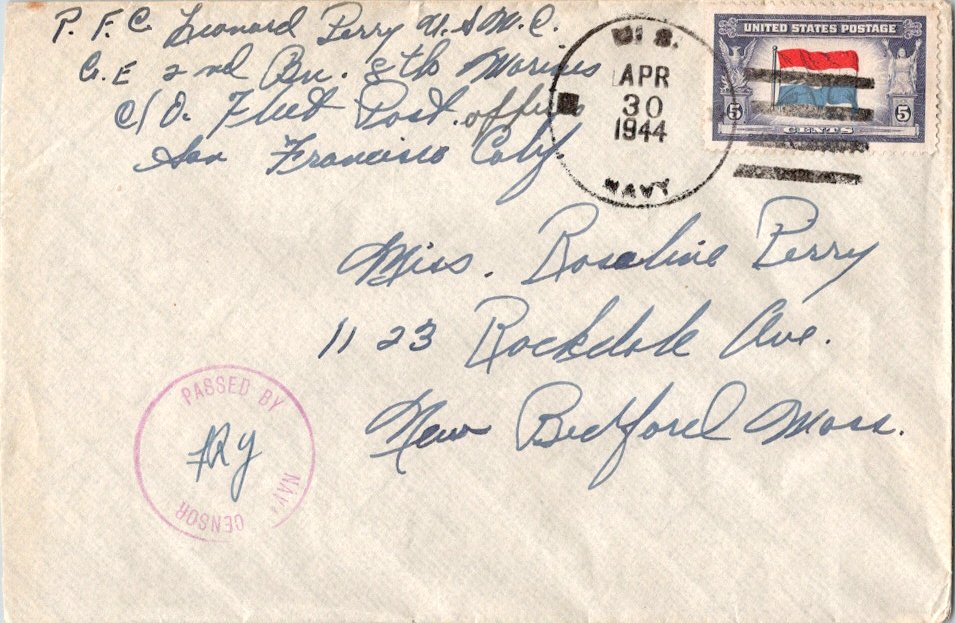 P. F. C. Leonard Perry U.S.M.C.
Co. E 2nd Bn. 8th Marines
c/o. Fleet Post office
San Francisco Calif.
U. S.
APR
30
1944
NAVY
UNITED STATES POSTAGE
5 5
CENTS
Miss. Rosaline Perry
1123 Rockdale Ave.
New Bedford Mass.
PASSED BY
NAVAL
CENSOR